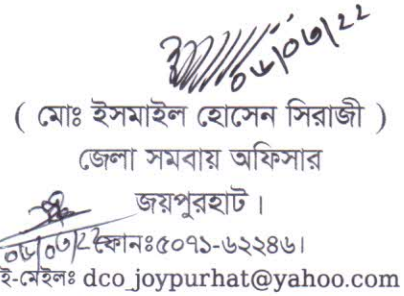 ০৬/০৭/২২
( মোঃ ইসমাইল হোসেন সিরাজী )
জেলা সমবায় অফিসার
জয়পুরহাট ।
০৬/০৭/২২
ফোনঃ৫০৭১-৬২২৪৬।
ই-মেইলঃ dco_joypurhat@yahoo.com